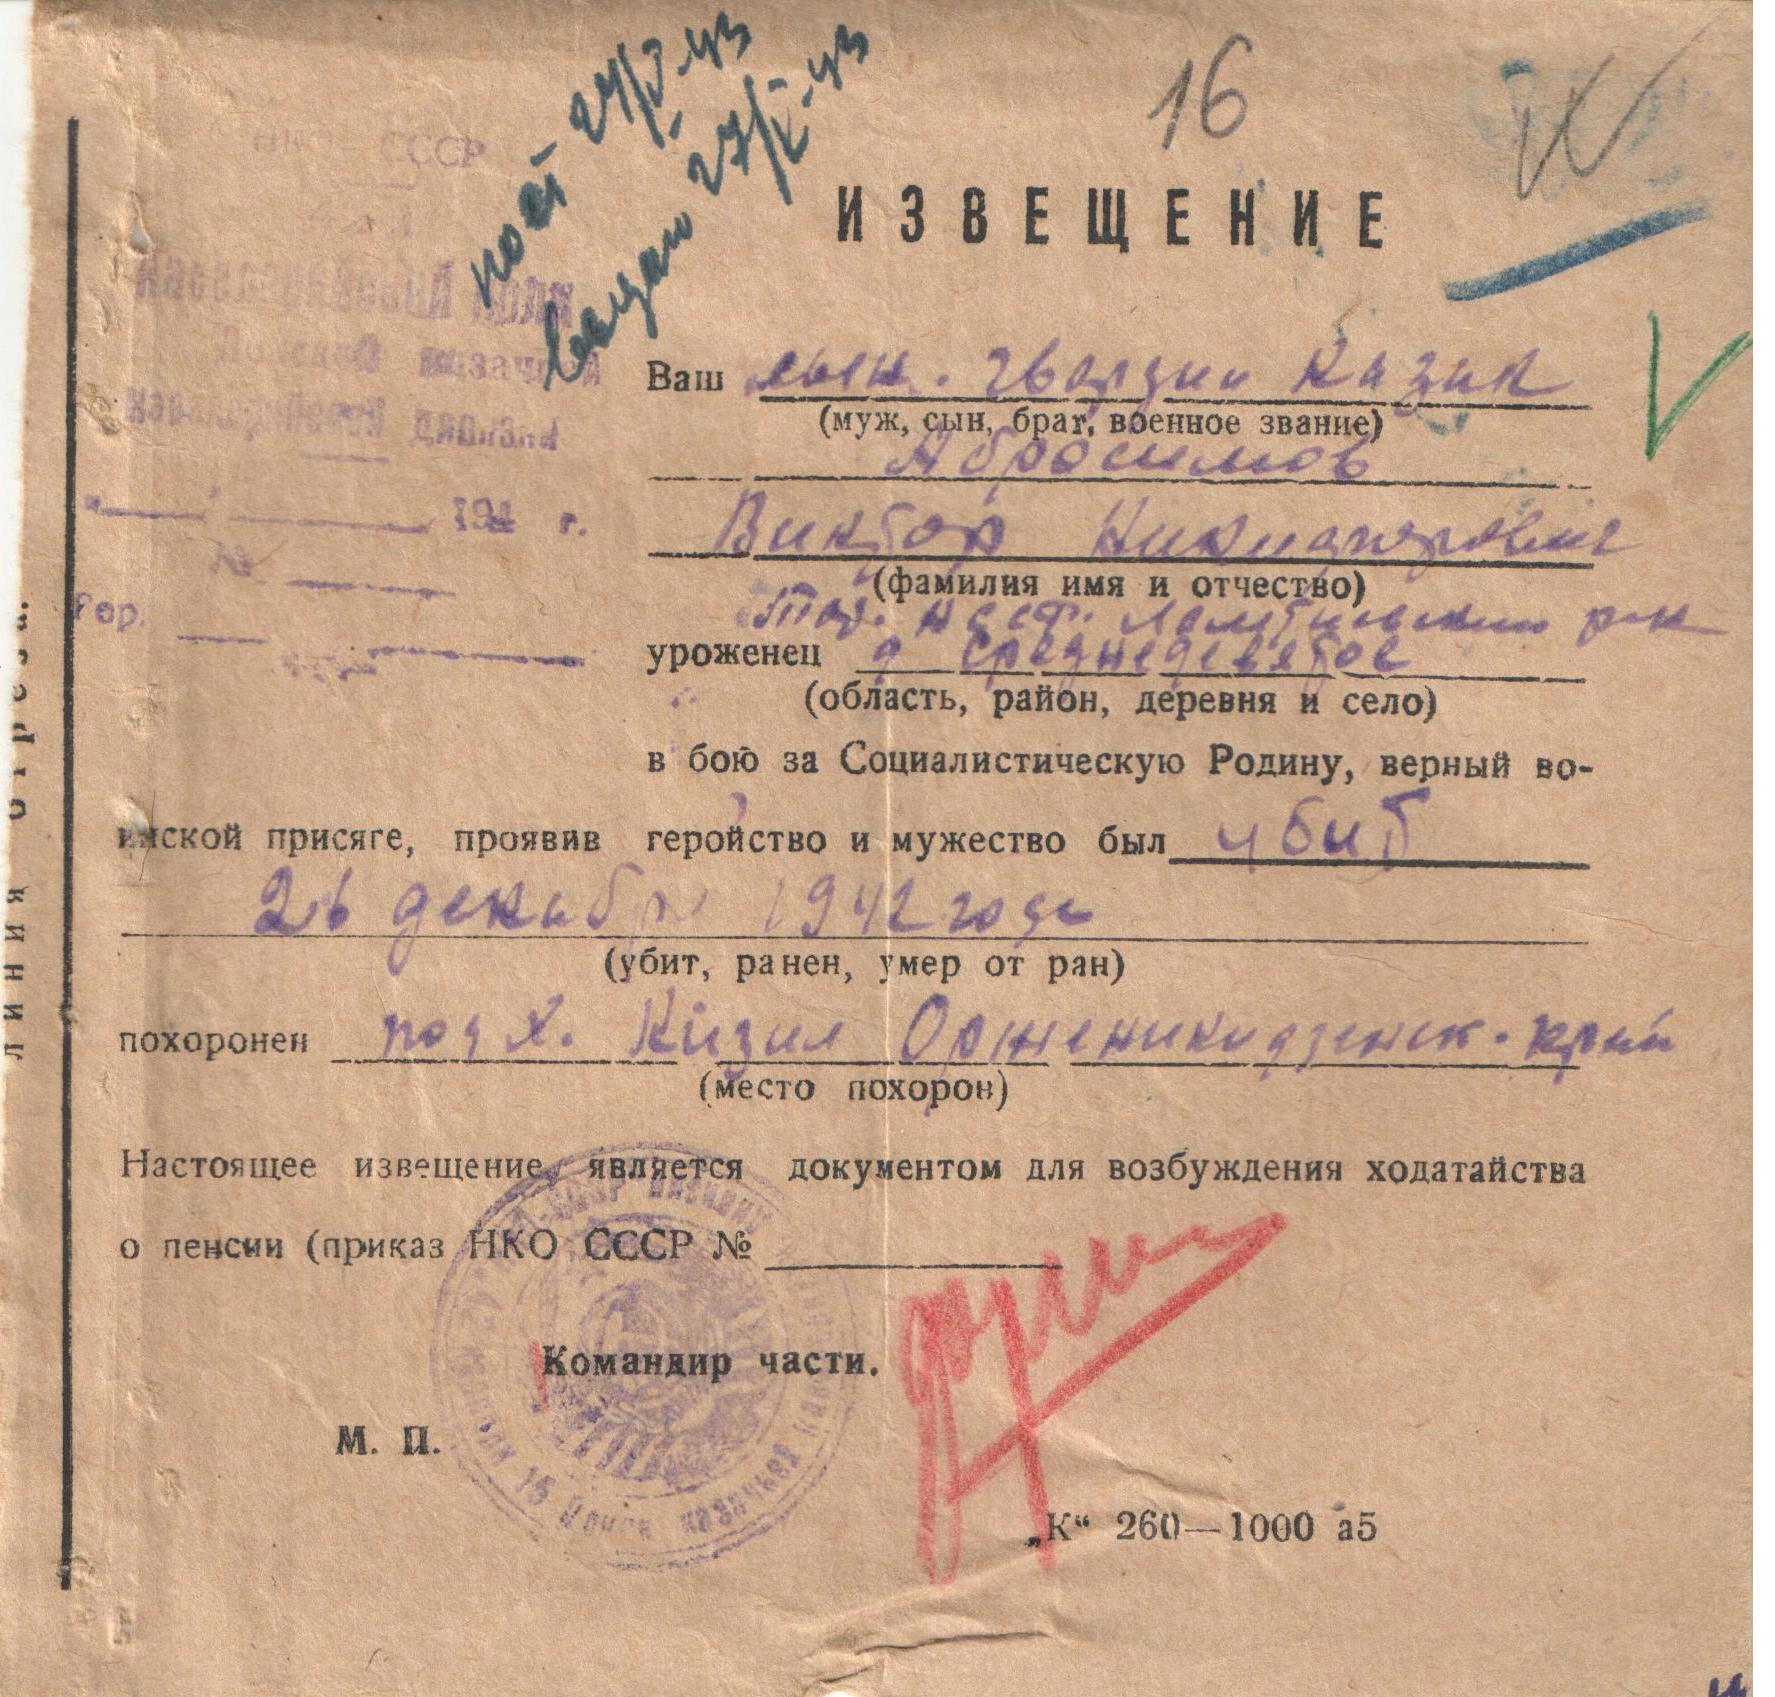 16
пост 27/V-43
выдан 27/V-43
НКО СССР
ИЗВЕЩЕНИЕ
Ваш сын. гвардии Казак
(муж, сын, брат, военное звание)
Абросимов
Виктор Никифорович
(фамилия имя и отчество)
уроженец д Среднедевятое
(область, район, деревня и село)
в бою за Социалистическую Родину, верный во-
инской присяге, проявив геройство и мужество был убит
26 декабря 1942 года
(убит, ранен, умер от ран)
похоронен под х. Кизил Орженикидзенск. край
(место похорон)
Настоящее извещение является документом для возбуждения ходатайства
о пенсии (приказ НКО СССР №
Командир части.
М. П.
„К“ 260—1000 а5
194 г.
№
гор.
линия отреза.